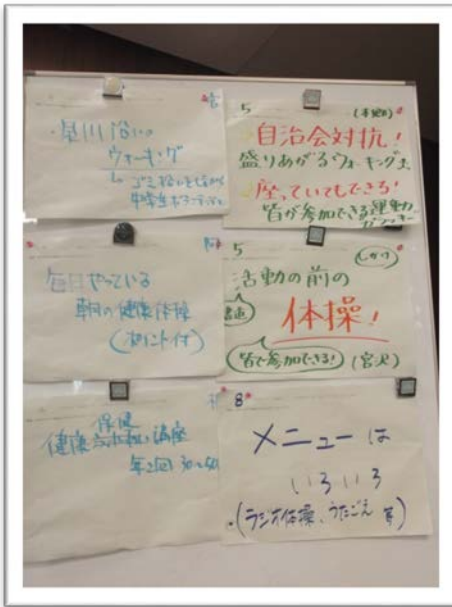 ・早川沿いの
ウォーキング
ゴミ拾いをしながら
中学生ボランティアと
5
自治会対抗!
盛りあがるウォーキング
座っていてもできる!
皆が参加できる運動
毎日やっている
朝の健康体操
(ポイント付)
5
活動の前の
体操!
皆で参加できる!
(宮沢)
保健
健康 講座
年2回
8
メニューは
いろいろ
(ラジオ体操、うたごえ 等)